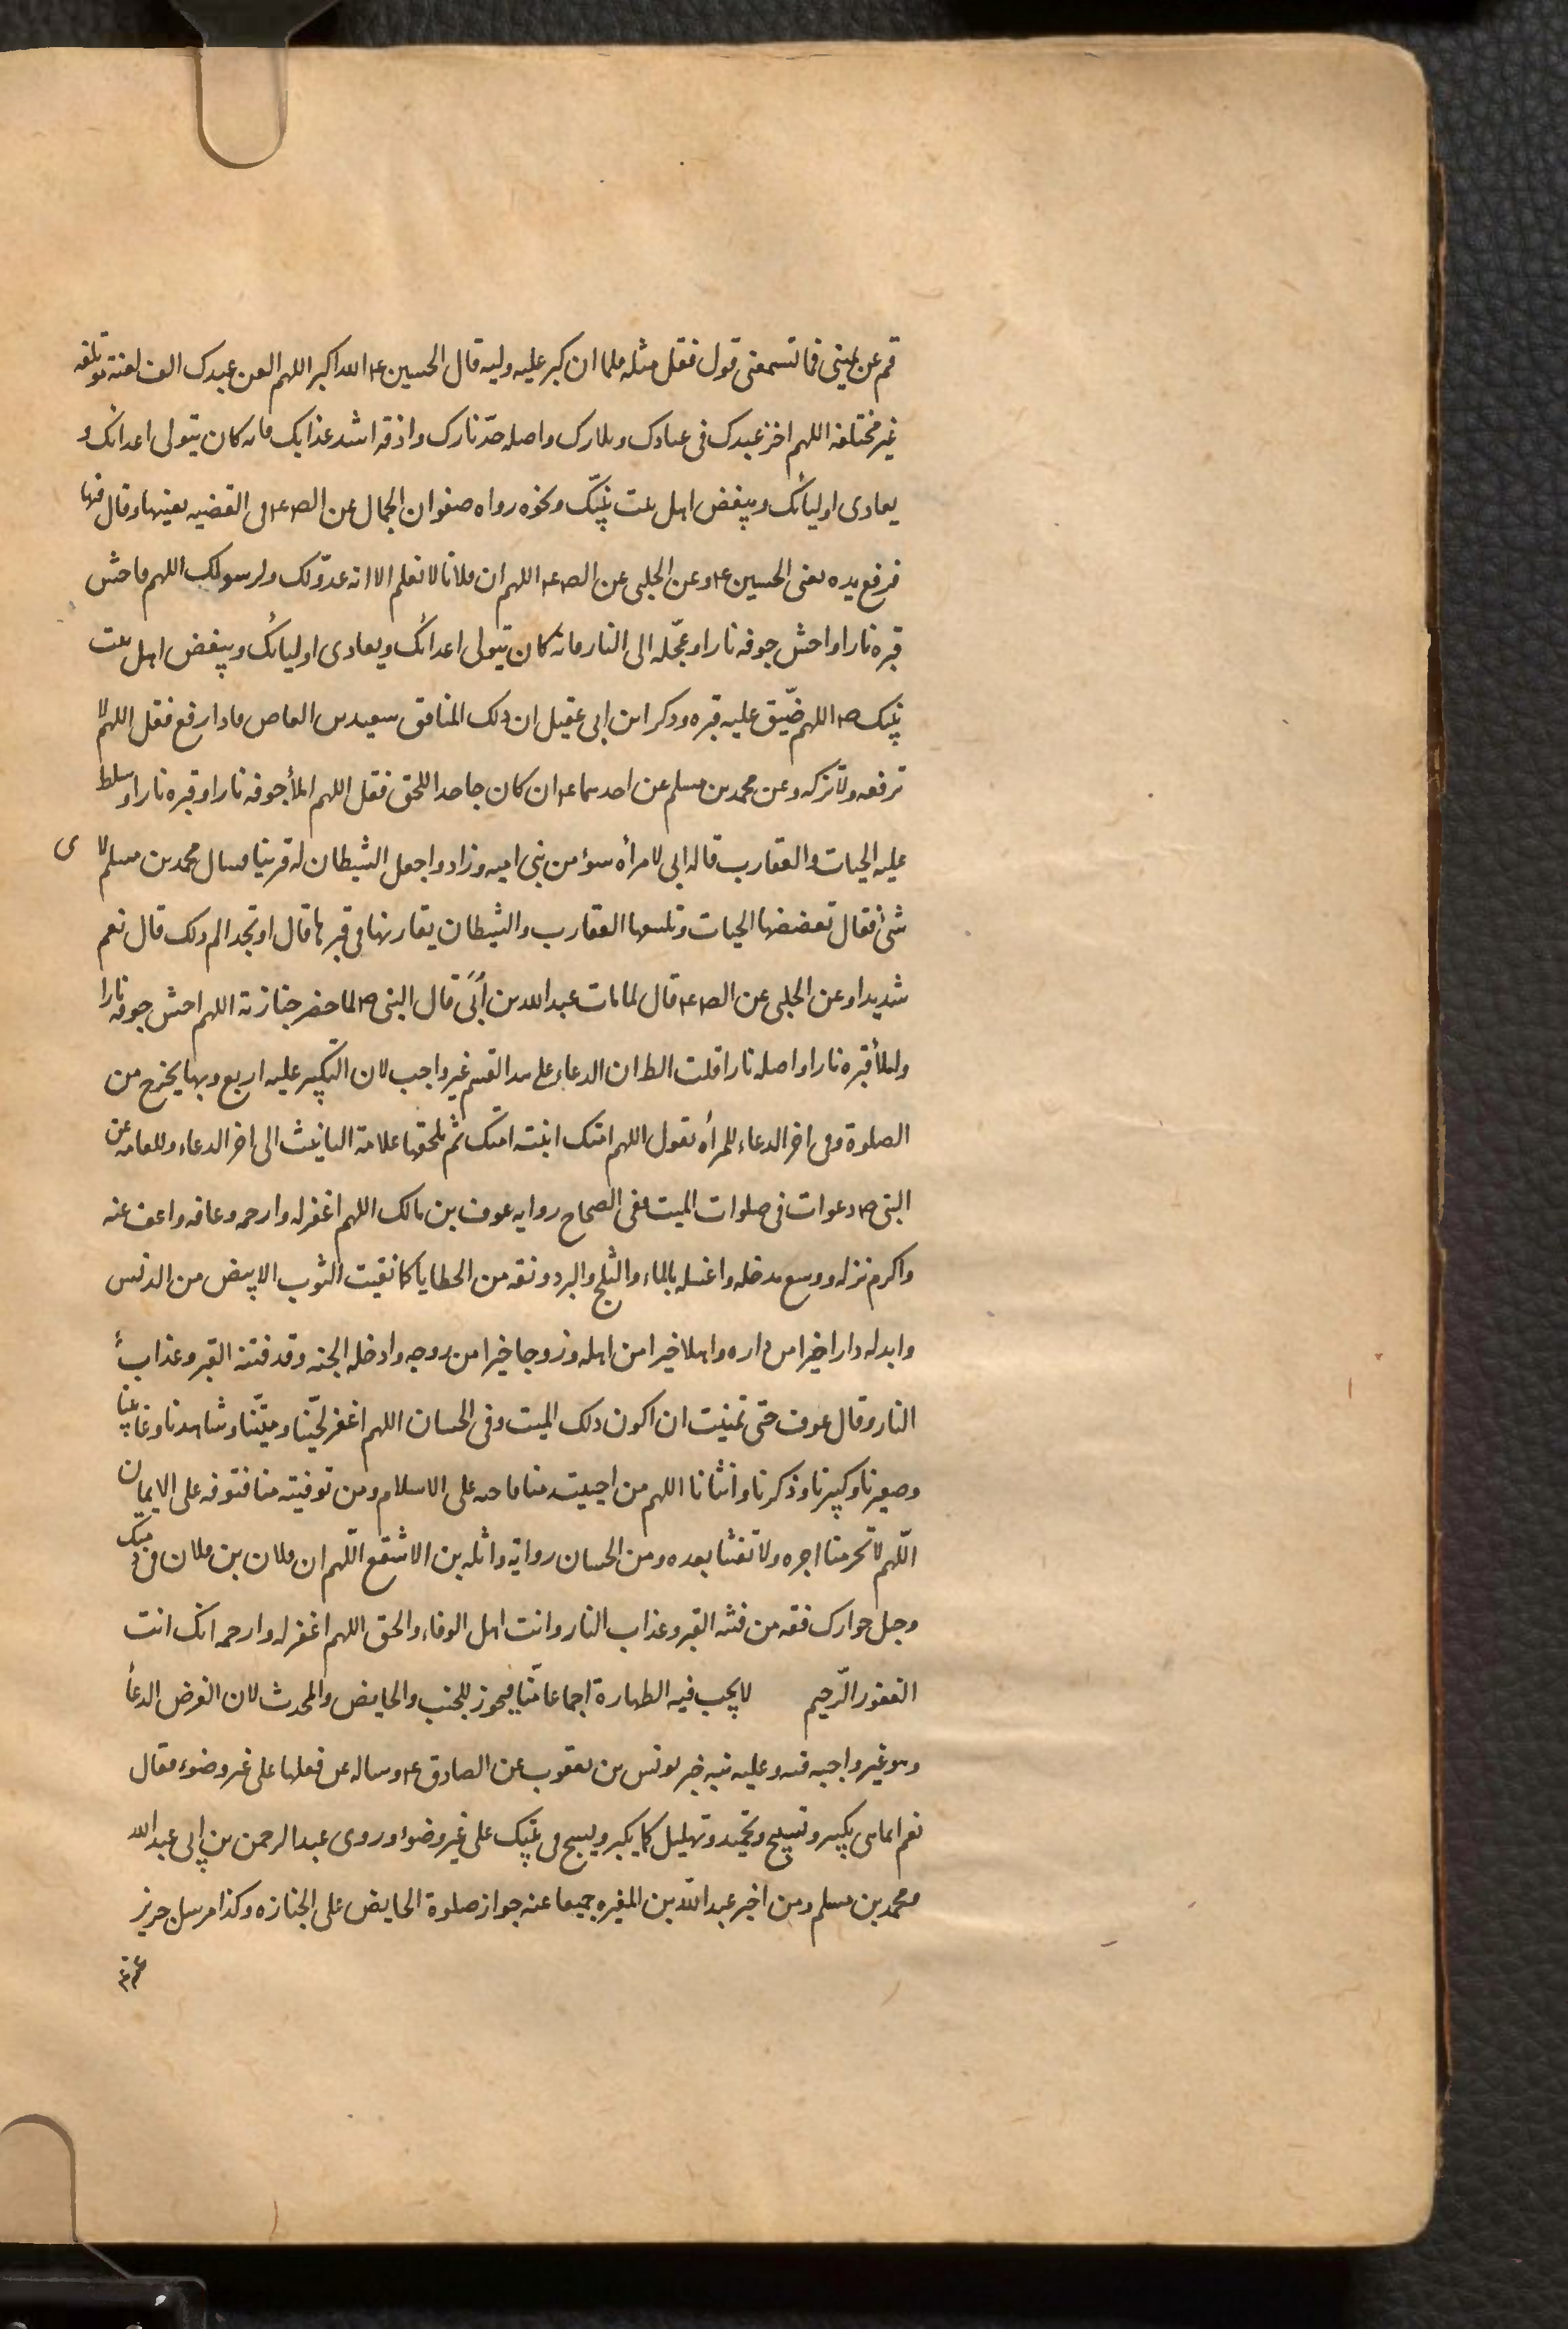 قم عن يميني فما تسمعني قول فقل مثله فلما ان كبر عليه وليه قال الحسين ع الله اكبر اللهم العن عبدك الف لعنة مؤتلفه
غير مختلفه اللهم اخز عبدك في عبادك وبلادك واصله حرّ نارك واذقه اشد عذابك فانه كان يتولى اعدائك و
يعادى اوليائك ويبغض اهل بيت نبيّك ونحوه رواه صفوان الجمال عن الص ع في القضيه بعينها وقال فيها
فرفع يده يعنى الحسين ع وعن الحلبى عن الص ع اللهم ان فلانا لا نعلم الا انه عدوّ لك ولرسولك اللهم فاحش
قبره نارا واحش جوفه نارا وعجّله الى النار فانه كان يتولى اعدائك ويعادى اوليائك ويبغض اهل بيت
نبيك ص اللهم ضيّق عليه قبره وذكر ابن ابى عقيل ان ذلك المنافق سعيد بن العاص فاذا رفع فقل اللهم لا
ترفعه ولا تزكه وعن محمد بن مسلم عن احدهما ع ان كان جاحدا للحق فقل اللهم املأ جوفه نارا وقبره نارا وسلط
عليه الحيات والعقارب قاله ابى لامرأه سوء من بنى اميه وزاد واجعل الشيطان له قرينا فسال محمد بن مسلم لاى
شئ فقال تعضضها الحيات وتلسعها العقارب والشيطان يقارنها فى قبرها قال او تجد الم ذلك قال نعم
شديدا وعن الحلبى عن الص ع قال لما مات عبد الله بن أبىّ قال النبى ص لما حضر جنازته اللهم احش جوفه نارا
واملأ قبره نارا واصله نارا قلت الظ ان الدعاء على هذا القسم غير واجب لان التكبير عليه اربع وبها يخرج من
الصلوة وفى اخر الدعاء للمرأه يقول اللهم امتك ابنت امتك ثم يلحقها علامة التانيث الى اخر الدعاء وللعامه عن
النبى ص دعوات فى صلوات الميت ففى الصحاح روايه عوف بن مالك اللهم اغفر له وارحمه وعافه واعف عنه
واكرم نزله ووسع مدخله واغسله بالماء والثلج والبرد ونقه من الخطايا كما نقيت الثوب الابيض من الدنس
وابدله دارا خيرا من داره واهلا خيرا من اهله وزوجا خيرا من زوجه وادخله الجنه وقه فتنة القبر وعذاب
النار وقال عوف حتى تمنيت ان اكون ذلك الميت وفى الحسان اللهم اغفر لحيّنا وميّتنا وشاهدنا وغائبنا
وصغيرنا وكبيرنا وذكرنا وانثانا اللهم من احييت منا فاحيه على الاسلام ومن توفيته منا فتوفه على الايمان
اللّهم لا تحرمنا اجره ولا تفتنا بعده ومن الحسان رواية واثله بن الاشقع اللّهم ان فلان بن فلان فى ذمتك
وحبل جوارك فقه من فتنه القبر وعذاب النار وانت اهل الوفاء والحق اللهم اغفر له وارحمه انك انت
الغفور الرّحيم لا يجب فيه الطهارة اجماعا منّا فيجوز للجنب والحايض والمحدث لان الغرض الدعاء
وهو غير واجبه فيه وعليه نبه خبر يونس بن يعقوب عن الصادق ع وساله عن فعلها على غير وضوء فقال
نعم انما هى تكبير وتسبيح وتحميد وتهليل كما يكبر ويسبح فى بيتك على غير وضوء وروى عبد الرحمن بن ابى عبد الله
ومحمد بن مسلم ومن اخبر عبد اللّه بن المغيره جميعا عنه جواز صلوة الحايض على الجنازه وكذا مرسل حريز